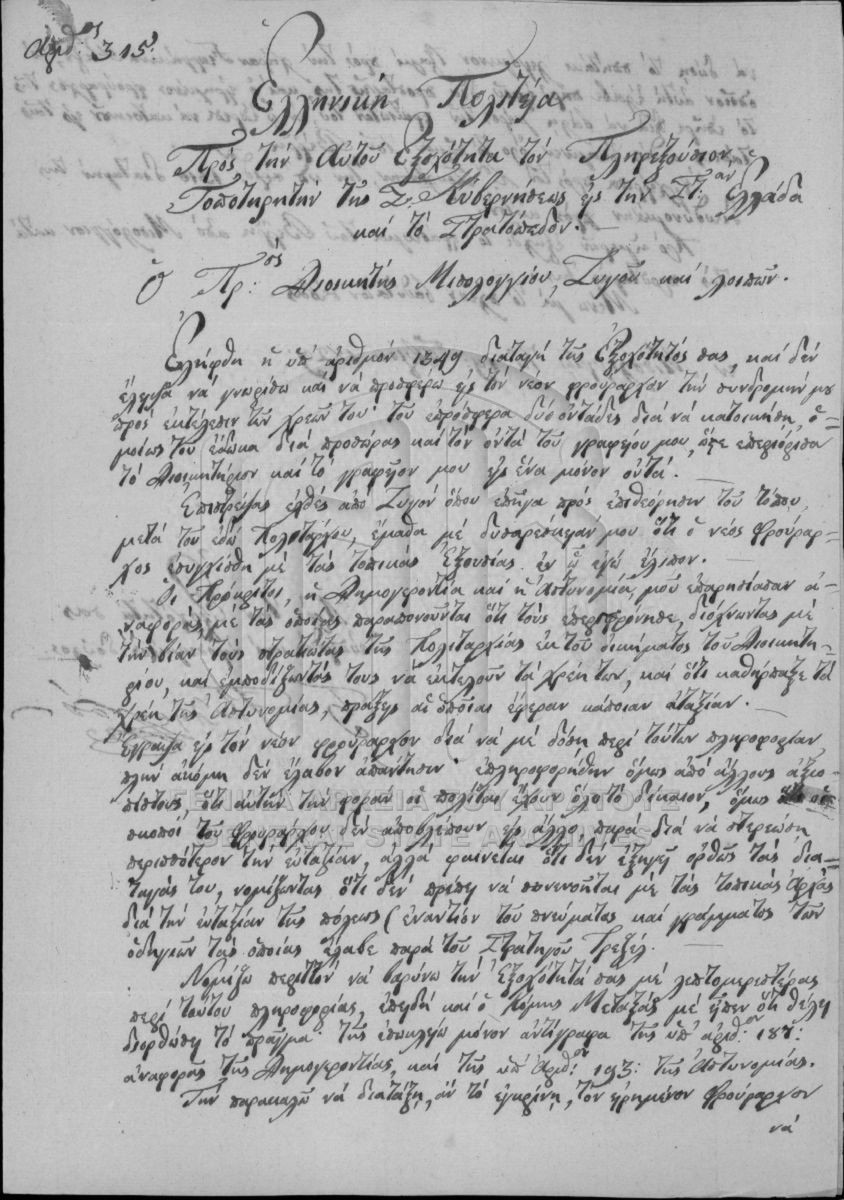 ἀριθ:ος 315:
Ἑλληνική Πολιτεία
Πρός τήν Αὐτοῦ Ἐξοχότητα τόν Πληρεξούσιον,
Τοποτηρητήν τῆς Σ. Κυβερνήσεως εἰς τήν Στ:άν Ἑλλάδα
καί τό Στρατόπεδον. —
Ὁ Πρ:ος Διοικητής Μισολογγίου, Ζυγοῦ καί λοιπῶν.
Ἐλήφθη ἡ ὑπ' ἀριθμόν 1349 διαταγή τῆς Ἐξοχότητός σας, καί δέν
ἔλειψα νά γνωρίσω καί νά προσφέρω εἰς τόν νέον φρούραρχον τήν συνδρομήν μου
πρός ἐκτέλεσιν τῶν χρεῶν του· τοῦ ἐπρόσφερα δύο ὀντάδες διά νά κατοικήση, ὁ=
μοίως τοῦ ἔδωκα διά προσώρας καί τόν ὀντά τοῦ γραφείου μου, ὥστε ἐπεριόρισα
τό Διοικητήριον καί τό γραφεῖον μου εἰς ἕνα μόνον ὀντά. —
Ἐπιστρέψας ἐχθές ἀπό Ζυγόν ὅπου ἐπῆγα πρός ἐπιθεώρησιν τοῦ τόπου,
μετά τοῦ ἐδῶ Πολιτάρχου, ἔμαθα μέ δυσαρέσκειάν μου ὅτι ὁ νέος Φρούραρ=
χος ἐσυγχίσθη μέ τάς τοπικάς Ἐξουσίας ἐν ᾧ ἐγώ ἔλιπον. —
Οἱ Πρόκριτοι, ἡ Δημογεροντία καί ἡ Ἀστυνομία, μοῦ ἐπαρησίασαν ἀ=
ναφοράς, μέ τάς ὁποίας παραπονοῦνται ὅτι τούς ἐπεριφρόνησε, διόχνωντας μέ
τήν βίαν τούς στρατιώτας τῆς Πολιταρχίας ἐκ τοῦ οἰκήματος τοῦ Διοικητη=
ρίου, καί ἐμποδίζωντάς τους νά ἐκτελοῦν τά χρέη των, καί ὅτι καθήρπαξε τά
χρέη τῆς Ἀστυνομίας, πράξεις αἱ ὁποῖαι ἔφεραν κάποιαν ἀταξίαν. —
Ἔγραψα εἰς τόν νέον φρούραρχον διά νά μέ δόση περί τούτων πληροφορίαν,
πλήν ἀκόμη δέν ἔλαβον ἀπάντησιν· ἐπληροφορήθην ὅμως ἀπό ἄλλους ἀξιο=
πίστους, ὅτι αὐτήν τήν φοράν οἱ πολῖται ἔχουν ὅλο τό δίκαιον, ὅμως οἱ
σκοποί τοῦ Φρουράρχου δέν ἀποβλέπουν εἰς ἄλλο παρά διά νά στερεώση
περισσότερον τήν εὐταξίαν, ἀλλά φαίνεται ὅτι δέν ἐξηγεῖ ὀρθῶς τάς δια=
ταγάς του, νομίζωντας ὅτι δέν πρέπει νά συνενοῆται μέ τάς τοπικάς Ἀρχάς
διά τήν εὐταξίαν τῆς πόλεως (ἐναντίον τοῦ πνεύματος καί γράμματος τῶν
ὁδηγιῶν τάς ὁποίας ἔλαβε παρά τοῦ Στρατηγοῦ Τρεζέλ. —
Νομίζω περιττόν νά βαρύνω τήν Ἐξοχότητά σας μέ λεπτομερεστέρας
περί τούτου πληροφορίας, ἐπειδή καί ὁ Κόμης Μεταξᾶς μέ εἶπεν ὅτι θέλει
διορθώσει τό πρᾶγμα· τῆς ἐσωκλείω μόνον ἀντίγραφα τῆς ὑπ' ἀριθ:όν 187:
ἀναφορᾶς τῆς Δημογεροντίας, καί τῆς ὑπ' Ἀριθ:όν 193: τῆς Ἀστυνομίας.
Τήν παρακαλῶ νά διατάξη, ἄν τό ἐγκρίνη, τόν εἰρημένον Φρούραρχον
νά
ΓΕΝΙΚΑ ΑΡΧΕΙΑ ΤΟΥ ΚΡΑΤΟΥΣ
GENERAL STATE ARCHIVES